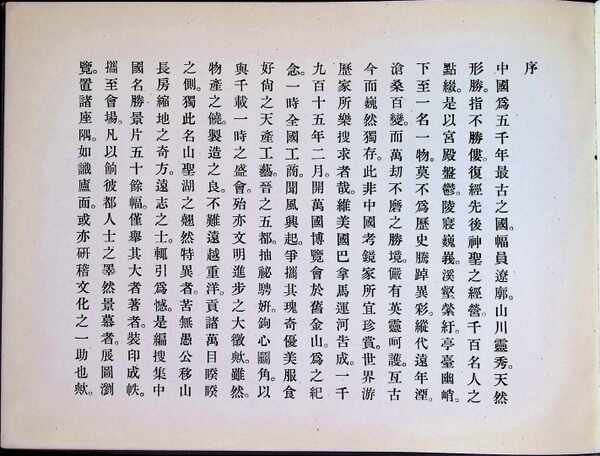 序
中國爲五千年最古之國。幅員遼廓。山川靈秀。天然
形勝。指不勝僂。復經先後神聖之經營。千百名人之
點綴。是以宮殿盤鬱。陵寢巍義。溪壑縈紆。亭臺幽峭。
下至一名一物。莫不爲歷史騰踔異彩。縱代遠年湮。
滄桑百變。而萬劫不磨之勝境。儼有英靈呵護。互古
今而巍然獨存。此非中國考鏡家所宜珍賞。世界游
歷家所樂搜求者哉。維美國巴拿馬運河告成。一千
九百十五年二月。開萬國博覽會於舊金山。爲之紀
念。一時全國工商。聞風興起。爭攜其瑰奇優美服食
好尙之天產工藝。晉之五都。抽祕騁妍。鉤心鬭角。以
與千載一時之盛會。殆亦文明進步之大徵歟。雖然。
物產之饒。製造之良。不難遠越重洋。貢諸萬目睽睽
之側。獨此名山聖湖之翹然特異者。苦無愚公移山
長房縮地之奇方。遠志之士。輒引爲憾。是編搜集中
國名勝景片五十餘幅。僅舉其大者著者。裝印成帙。
攜至會場。凡以餉彼都人士之睪然景慕者。展圖瀏
覽。置諸座隅。如識廬面。或亦研稽文化之一助也歟。